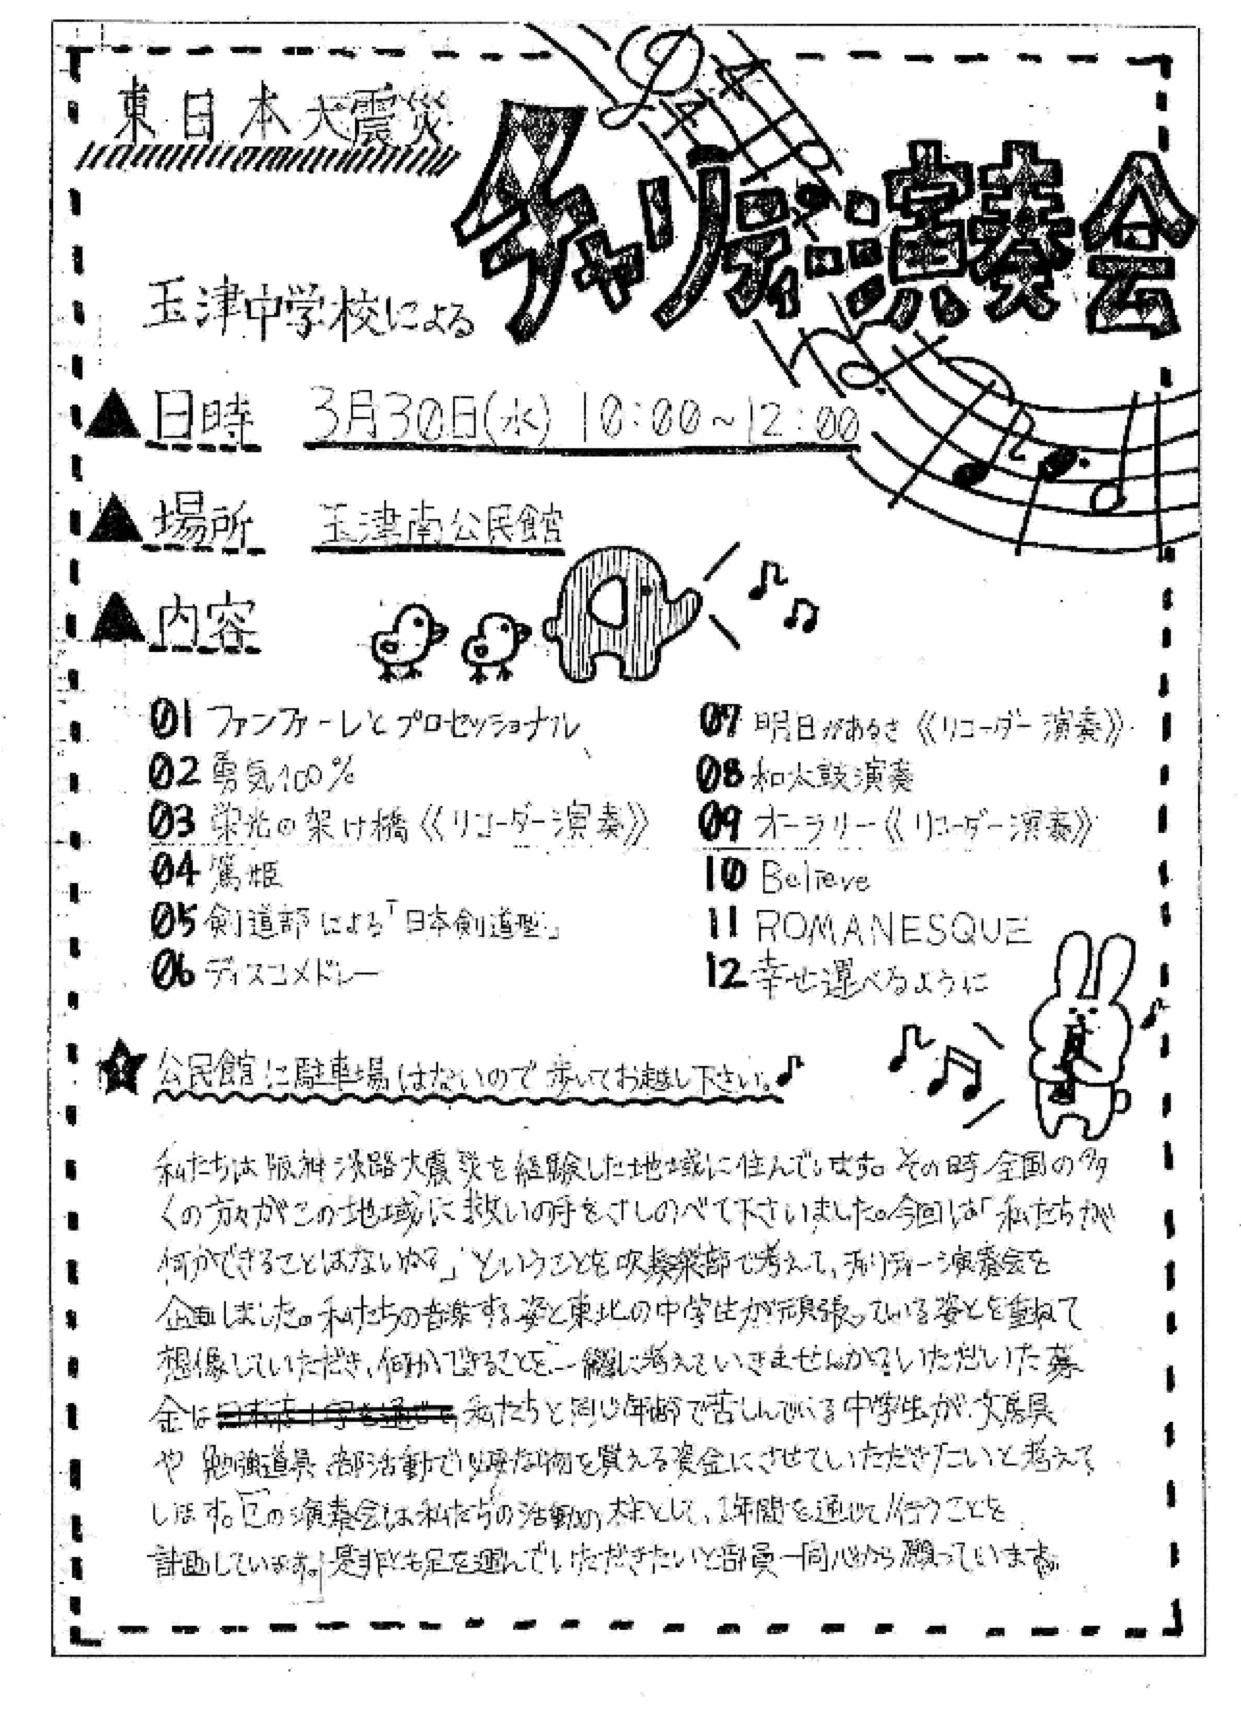 東日本大震災
チャリティー演奏会
玉津中学校による
▲日時 3月30日(水) 10:00~12:00
▲場所 玉津南公民館
▲内容
01 ファンファーレとプロセッショナル
02 勇気100%
03 栄光の架け橋《リコーダー演奏》
04 篤姫
05 剣道部による「日本剣道型」
06 ディスコメドレー
07 明日があるさ《リコーダー演奏》
08 和太鼓演奏
09 オーラリー《リコーダー演奏》
10 Believe
11 ROMANESQUE
12 幸せ運べるように
★公民館に駐車場はないので歩いてお越し下さい。♪
私たちは阪神淡路大震災を経験した地域に住んでいます。その時全国の多
くの方々がこの地域に救いの手をさしのべて下さいました。今回は「私たちが
何かできることはないか?」ということを吹奏楽部で考えて、チャリティー演奏会を
企画しました。私たちの音楽する姿と東北の中学生が頑張っている姿とを重ねて
想像していただき、何かできることを一緒に考えていきませんか?いただいた募
金は 私たちと同じ年齢で苦しんでいる中学生が、文房具
や勉強道具、部活動で必要な物を買える資金にさせていただきたいと考えて
います。この演奏会は私たちの活動の柱として、1年間を通じて行うことを
計画しています。是非とも足を運んでいただきたいと部員一同心から願っています。